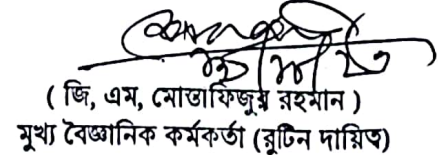 ( জি, এম, মোস্তাফিজুর রহমান )
মুখ্য বৈজ্ঞানিক কর্মকর্তা (রুটিন দায়িত্ব)